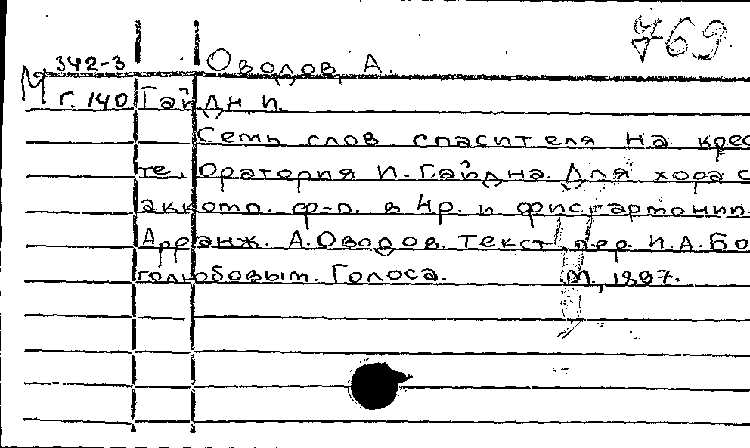 769
342-3 Оводов, А.
М Г. 140 Гайдн И.
Семь слов спасителя на крес
те. Оратория И. Гайдна. Для хора с
акком. ф-п. в 4р. и фисгармонии.
Арранж. А. Оводов. Текст пер. И.А. Бо
голюбовым. Голоса. М., 1887.